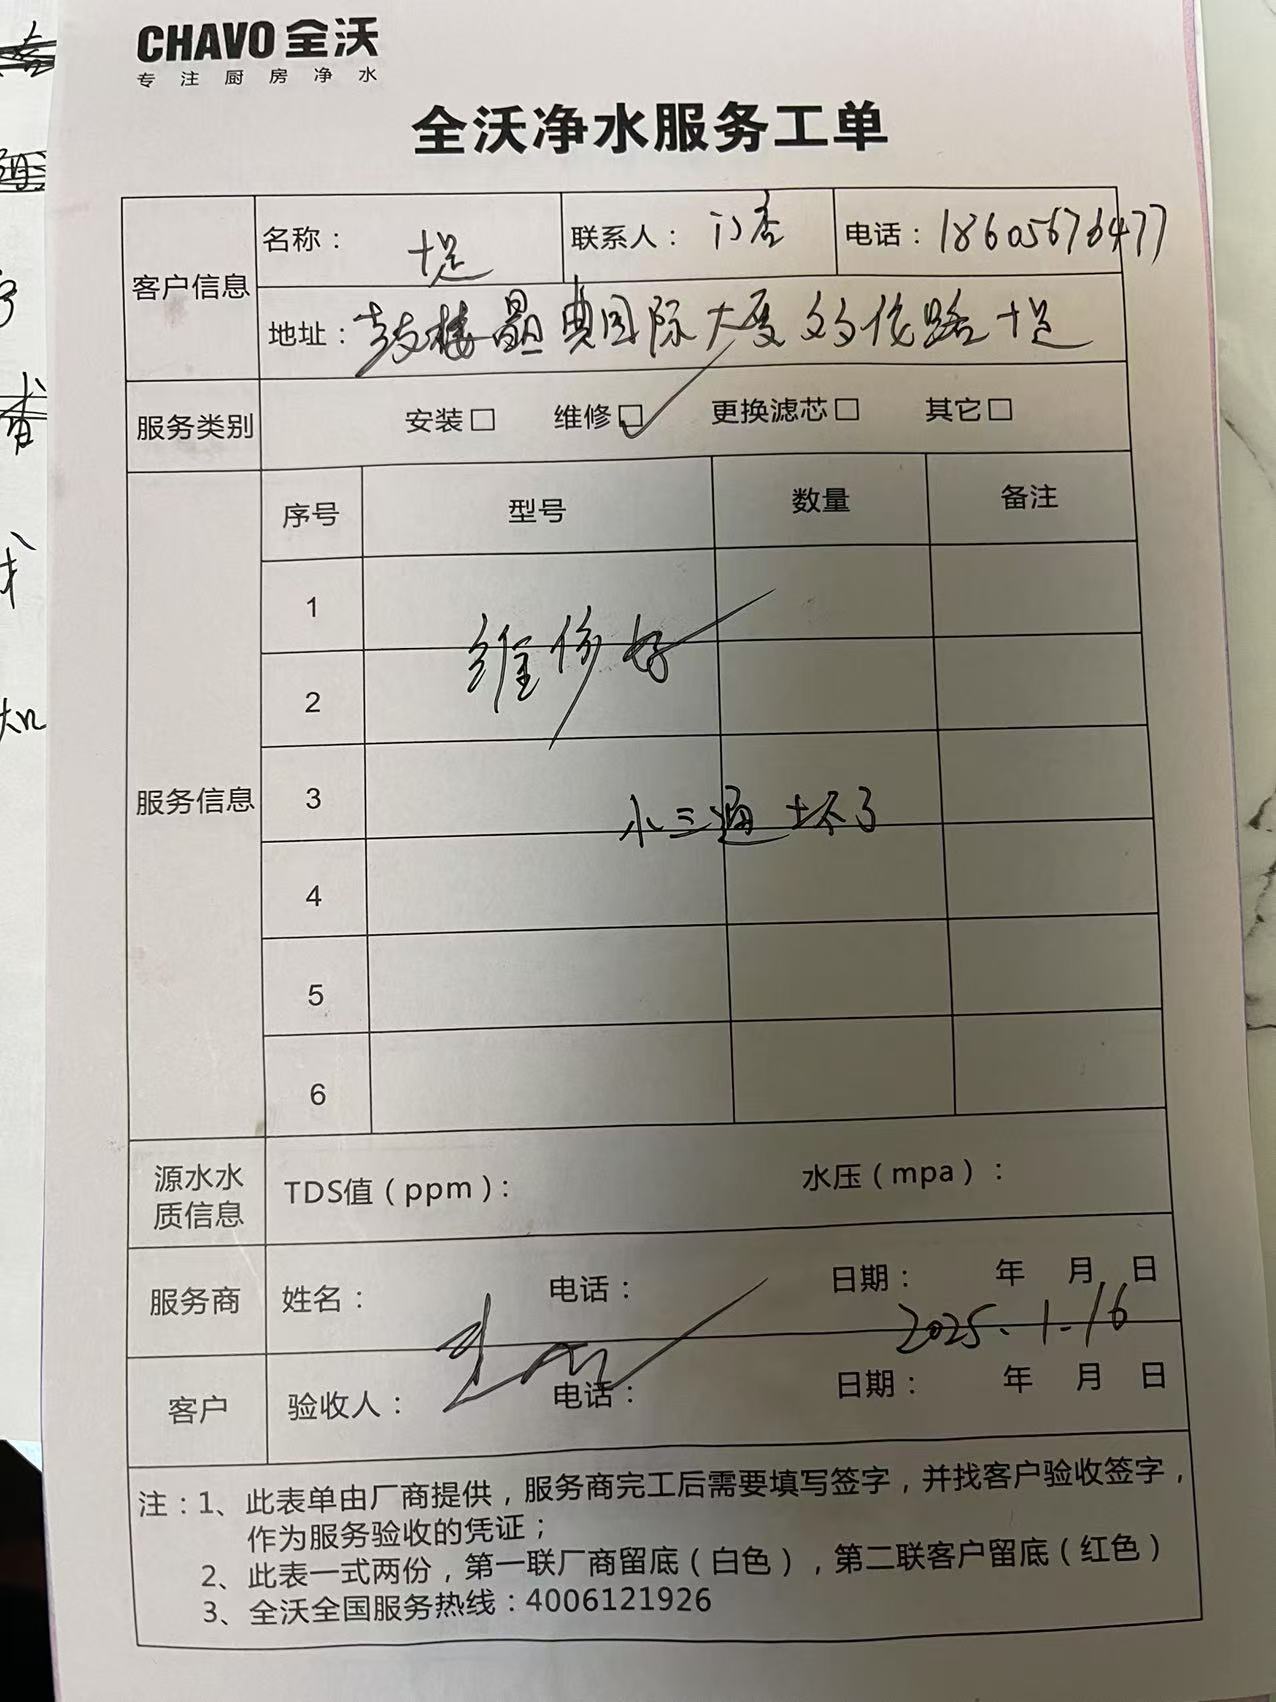 CHAVO 全沃
专注厨房净水
全沃净水服务工单
客户信息
名称：
联系人：门店
电话：18605676477
地址：鼓楼晶典国际大厦
服务类别
安装□ 维修□✓ 更换滤芯□ 其它□
服务信息
序号 型号 数量 备注
1
维修好
2
3
水三通坏了
4
5
6
源水水质信息
TDS值（ppm）： 水压（mpa）：
服务商 姓名： 电话： 日期： 年 月 日
2025.1.16
客户 验收人： 电话： 日期： 年 月 日
注：1、此表单由厂商提供，服务商完工后需要填写签字，并找客户验收签字，
作为服务验收的凭证；
2、此表一式两份，第一联厂商留底（白色），第二联客户留底（红色）
3、全沃全国服务热线：4006121926